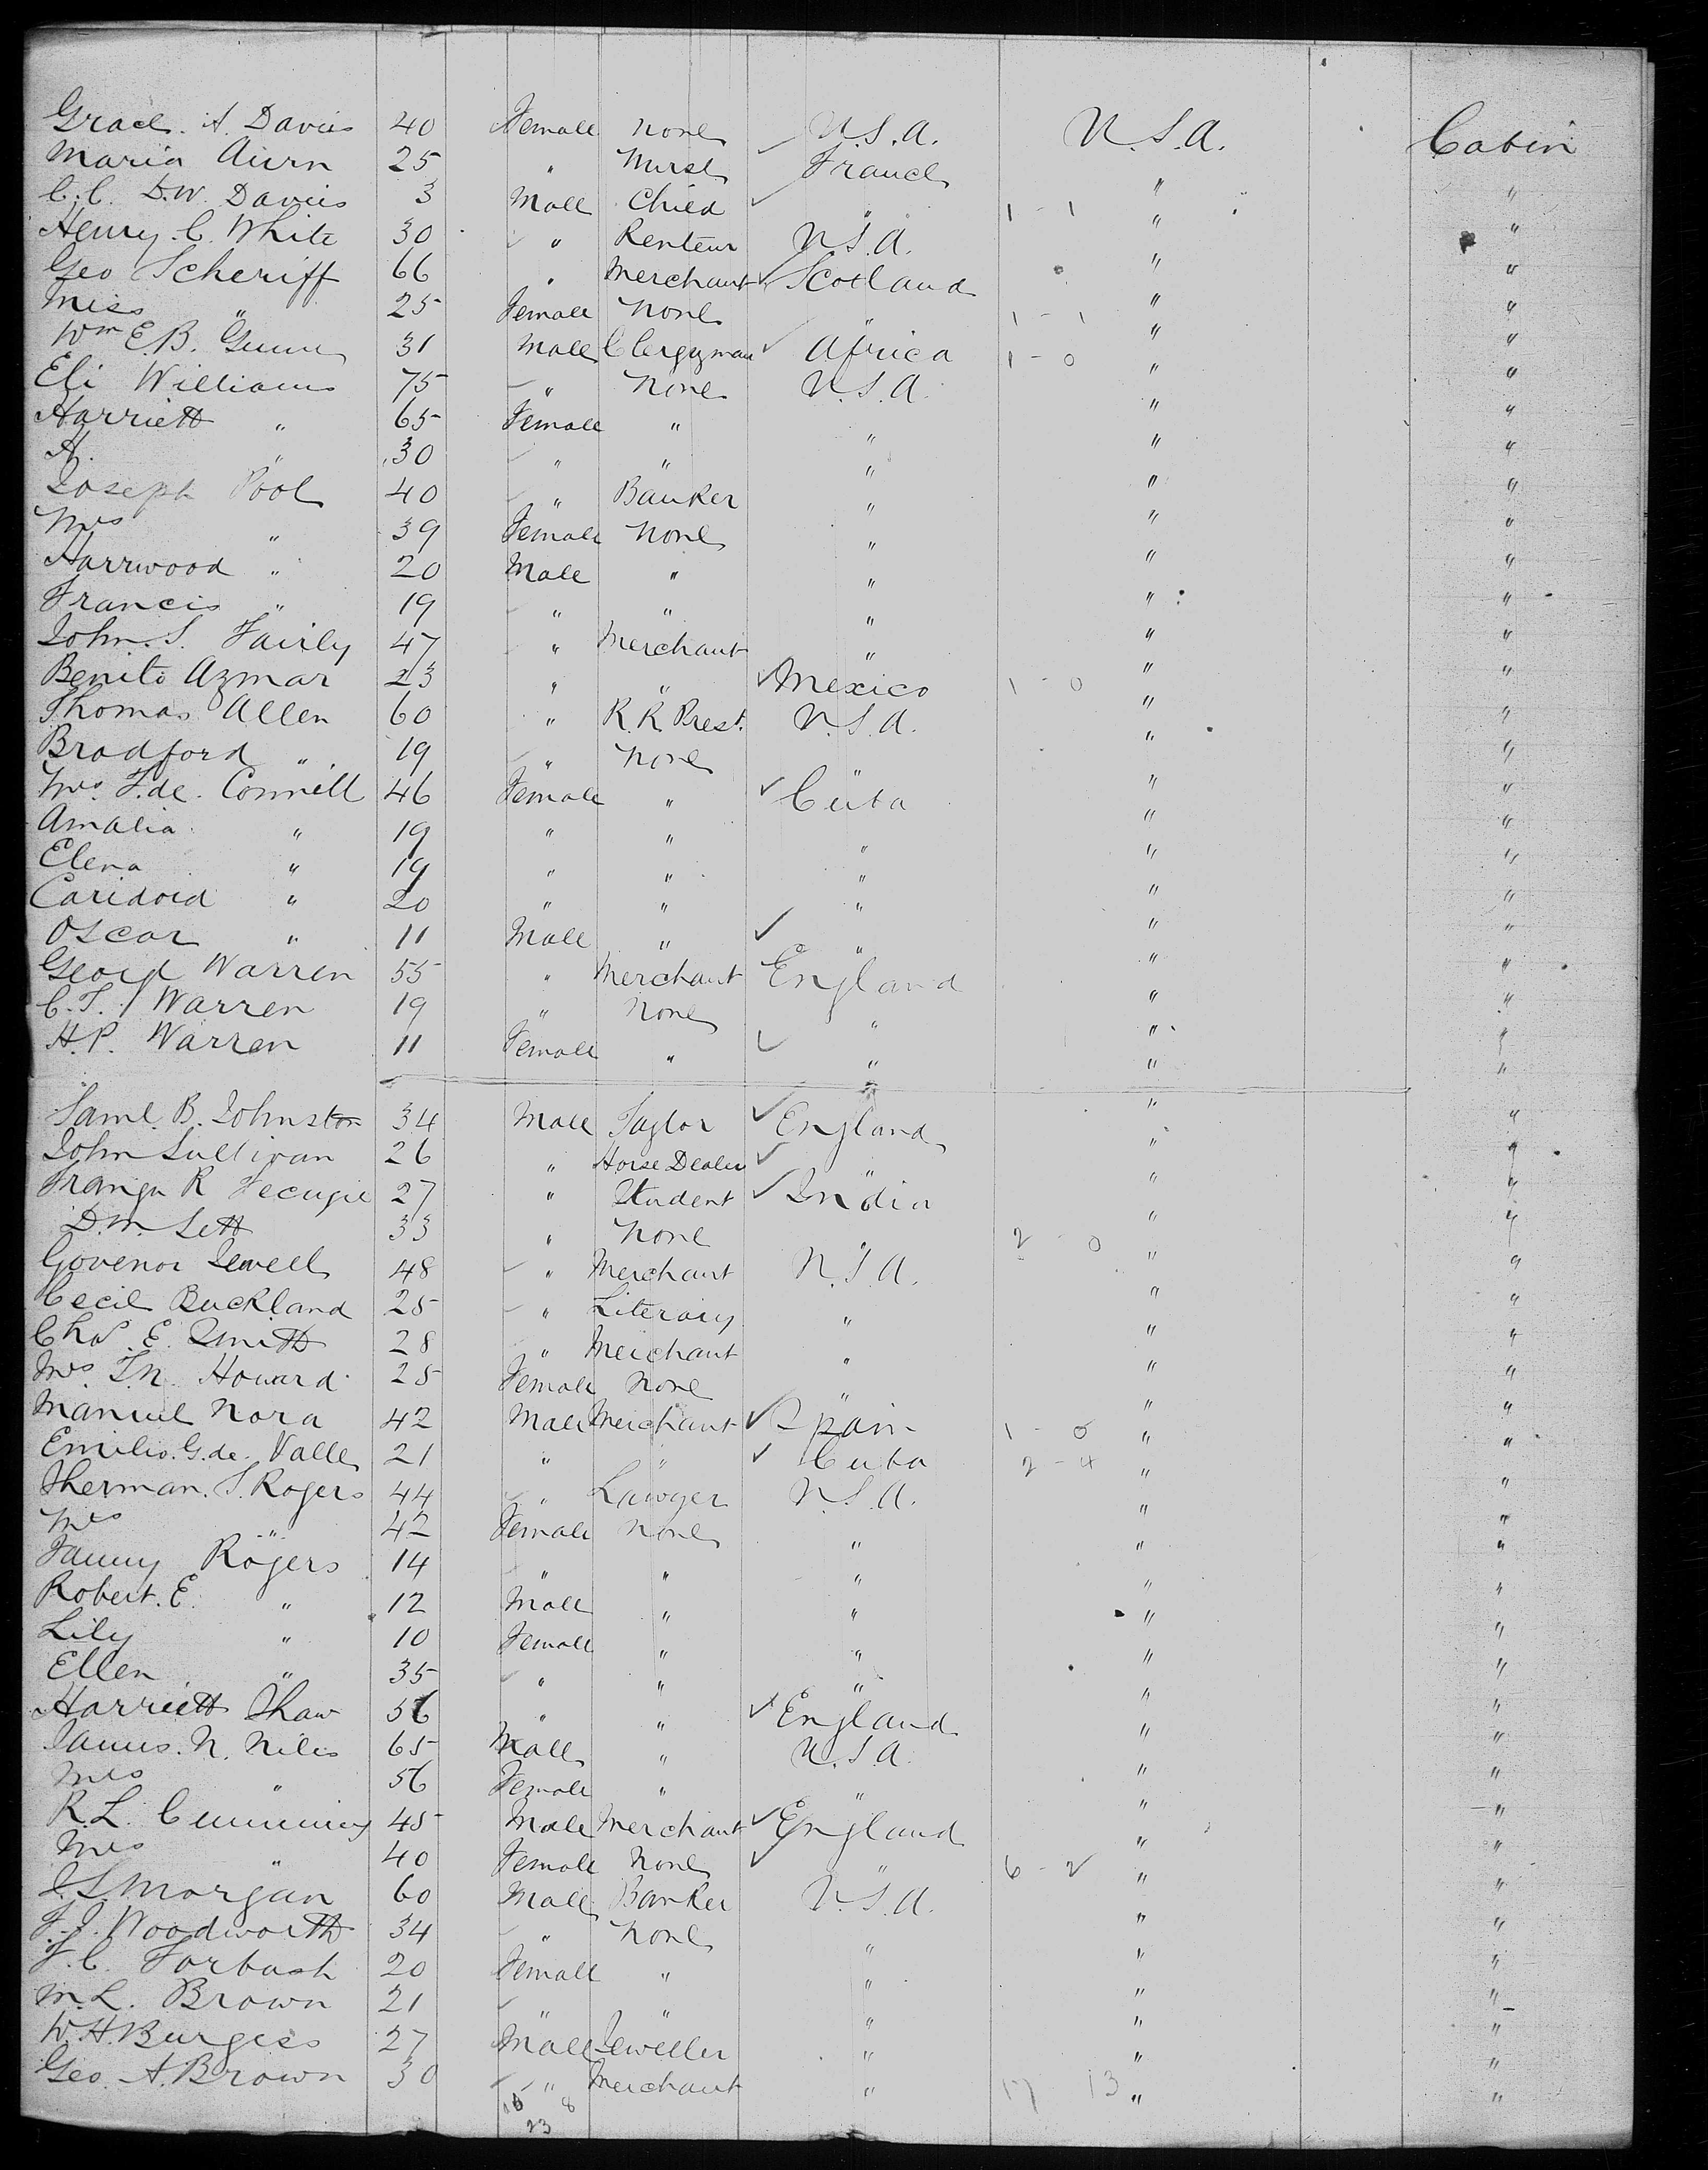 Grace. A. Davies 40 Female None U.S.A. U.S.A. Cabin
Maria Aurn 25 " Nurse France " "
C.C. D.W. Davies 3 Male Child " 1 - 1 " "
Henry. C. White 30 " Renteur U.S.A. " "
Geo Scheriff 66 " Merchant Scotland " "
Miss " 25 Female None " 1 - 1 " "
Wm E.B. Gunn 31 Male Clergyman Africa 1 - 0 " "
Eli Williams 75 " None U.S.A. " "
Harriett " 65 Female " " " "
H. " 30 " " " " "
Joseph Pool 40 " Banker " " "
Mrs " 39 Female None " " "
Harrwood " 20 Male " " " "
Francis " 19 " " " " "
John. S. Fairly 47 " Merchant " " "
Benito Azmar 23 " " Mexico 1 - 0 " "
Thomas Allen 60 " R.R. Prest. U.S.A. " "
Bradford " 19 " None " "
Mrs. F. de. Connell 46 Female " Cuba " "
Amalia " 19 " " " " "
Elena " 19 " " " " "
Caridoid " 20 " " " " "
Oscar " 11 Male " " " "
Geord Warren 55 " Merchant England " "
C.T. Warren 19 " None " " "
H.P. Warren 11 Female " " " "
Saml. B. Johnston 34 Male Taylor England " "
John Sullivan 26 " Horse Dealer " " "
R 27 " Student India " "
D.M. Sett 33 " None " 2 - 0 " "
Govenor Jewell 48 " Merchant U.S.A. " "
Cecil Buckland 25 " Literary " " "
Chas. E. Smith 28 " Merchant " " "
Mrs. T.N. Howard 25 Female None " " "
Manuel Nora 42 Male Merchant Spain 1 - 0 " "
Emilio. G. de. Valle 21 " " Cuba 2 - 4 " "
Sherman. S. Rogers 44 " Lawyer U.S.A. " "
Mrs " 42 Female None " " "
Fanny Rogers 14 " " " " "
Robert. E. " 12 Male " " " "
Lily " 10 Female " " " "
Ellen " 35 " " " " "
Harriett Shaw 56 " " England " "
James. N. Niles 65 Male " U.S.A. " "
Mrs " 56 Female " " " "
R.L. Cumming 45 Male Merchant England " "
Mrs " 40 Female None " 6 - 2 " "
J.S. Morgan 60 Male Banker U.S.A. " "
F.J. Woodworth 34 " None " " "
F.C. Forbush 20 Female " " " "
M.L. Brown 21 " " " " "
W.H. Burgess 27 Male Jeweller " " "
Geo. A. Brown 30 " Merchant " 17 13 " "
8
23